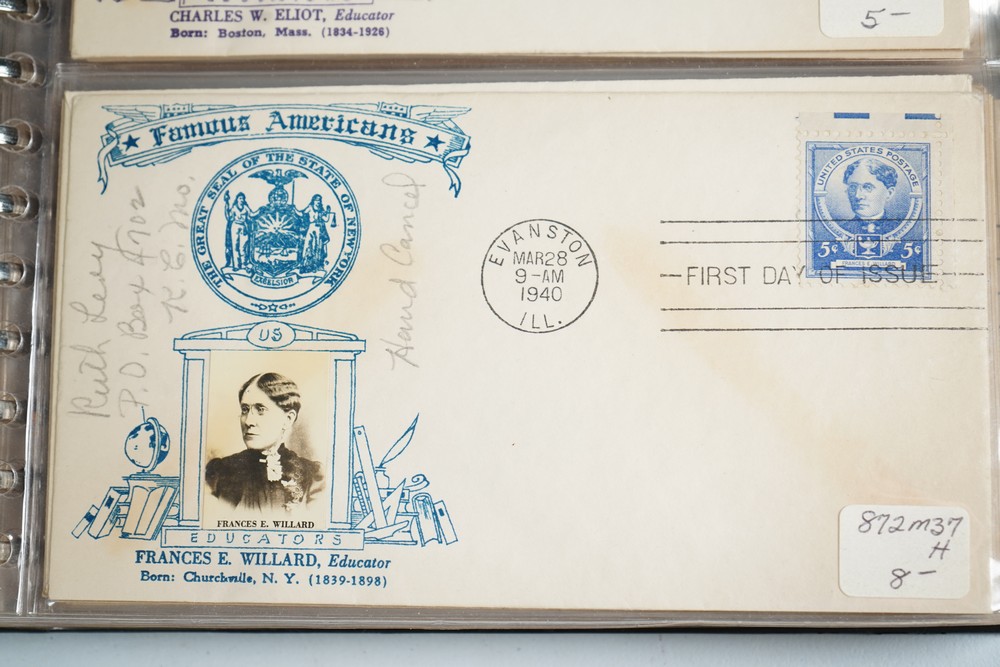 CHARLES W. ELIOT, Educator
Born: Boston, Mass. (1834-1926)
5-
Famous Americans
THE GREAT SEAL OF THE STATE OF NEW YORK
EXCELSIOR
Ruth Levy
P.O. Box
K. C. Mo.
Hand Cancel
US
FRANCES E. WILLARD
EDUCATORS
FRANCES E. WILLARD, Educator
Born: Churchville, N. Y. (1839-1898)
EVANSTON
MAR 28
9-AM
1940
ILL.
UNITED STATES POSTAGE
5¢ 5¢
FRANCES E. WILLARD
FIRST DAY OF ISSUE
872M37
H
8-